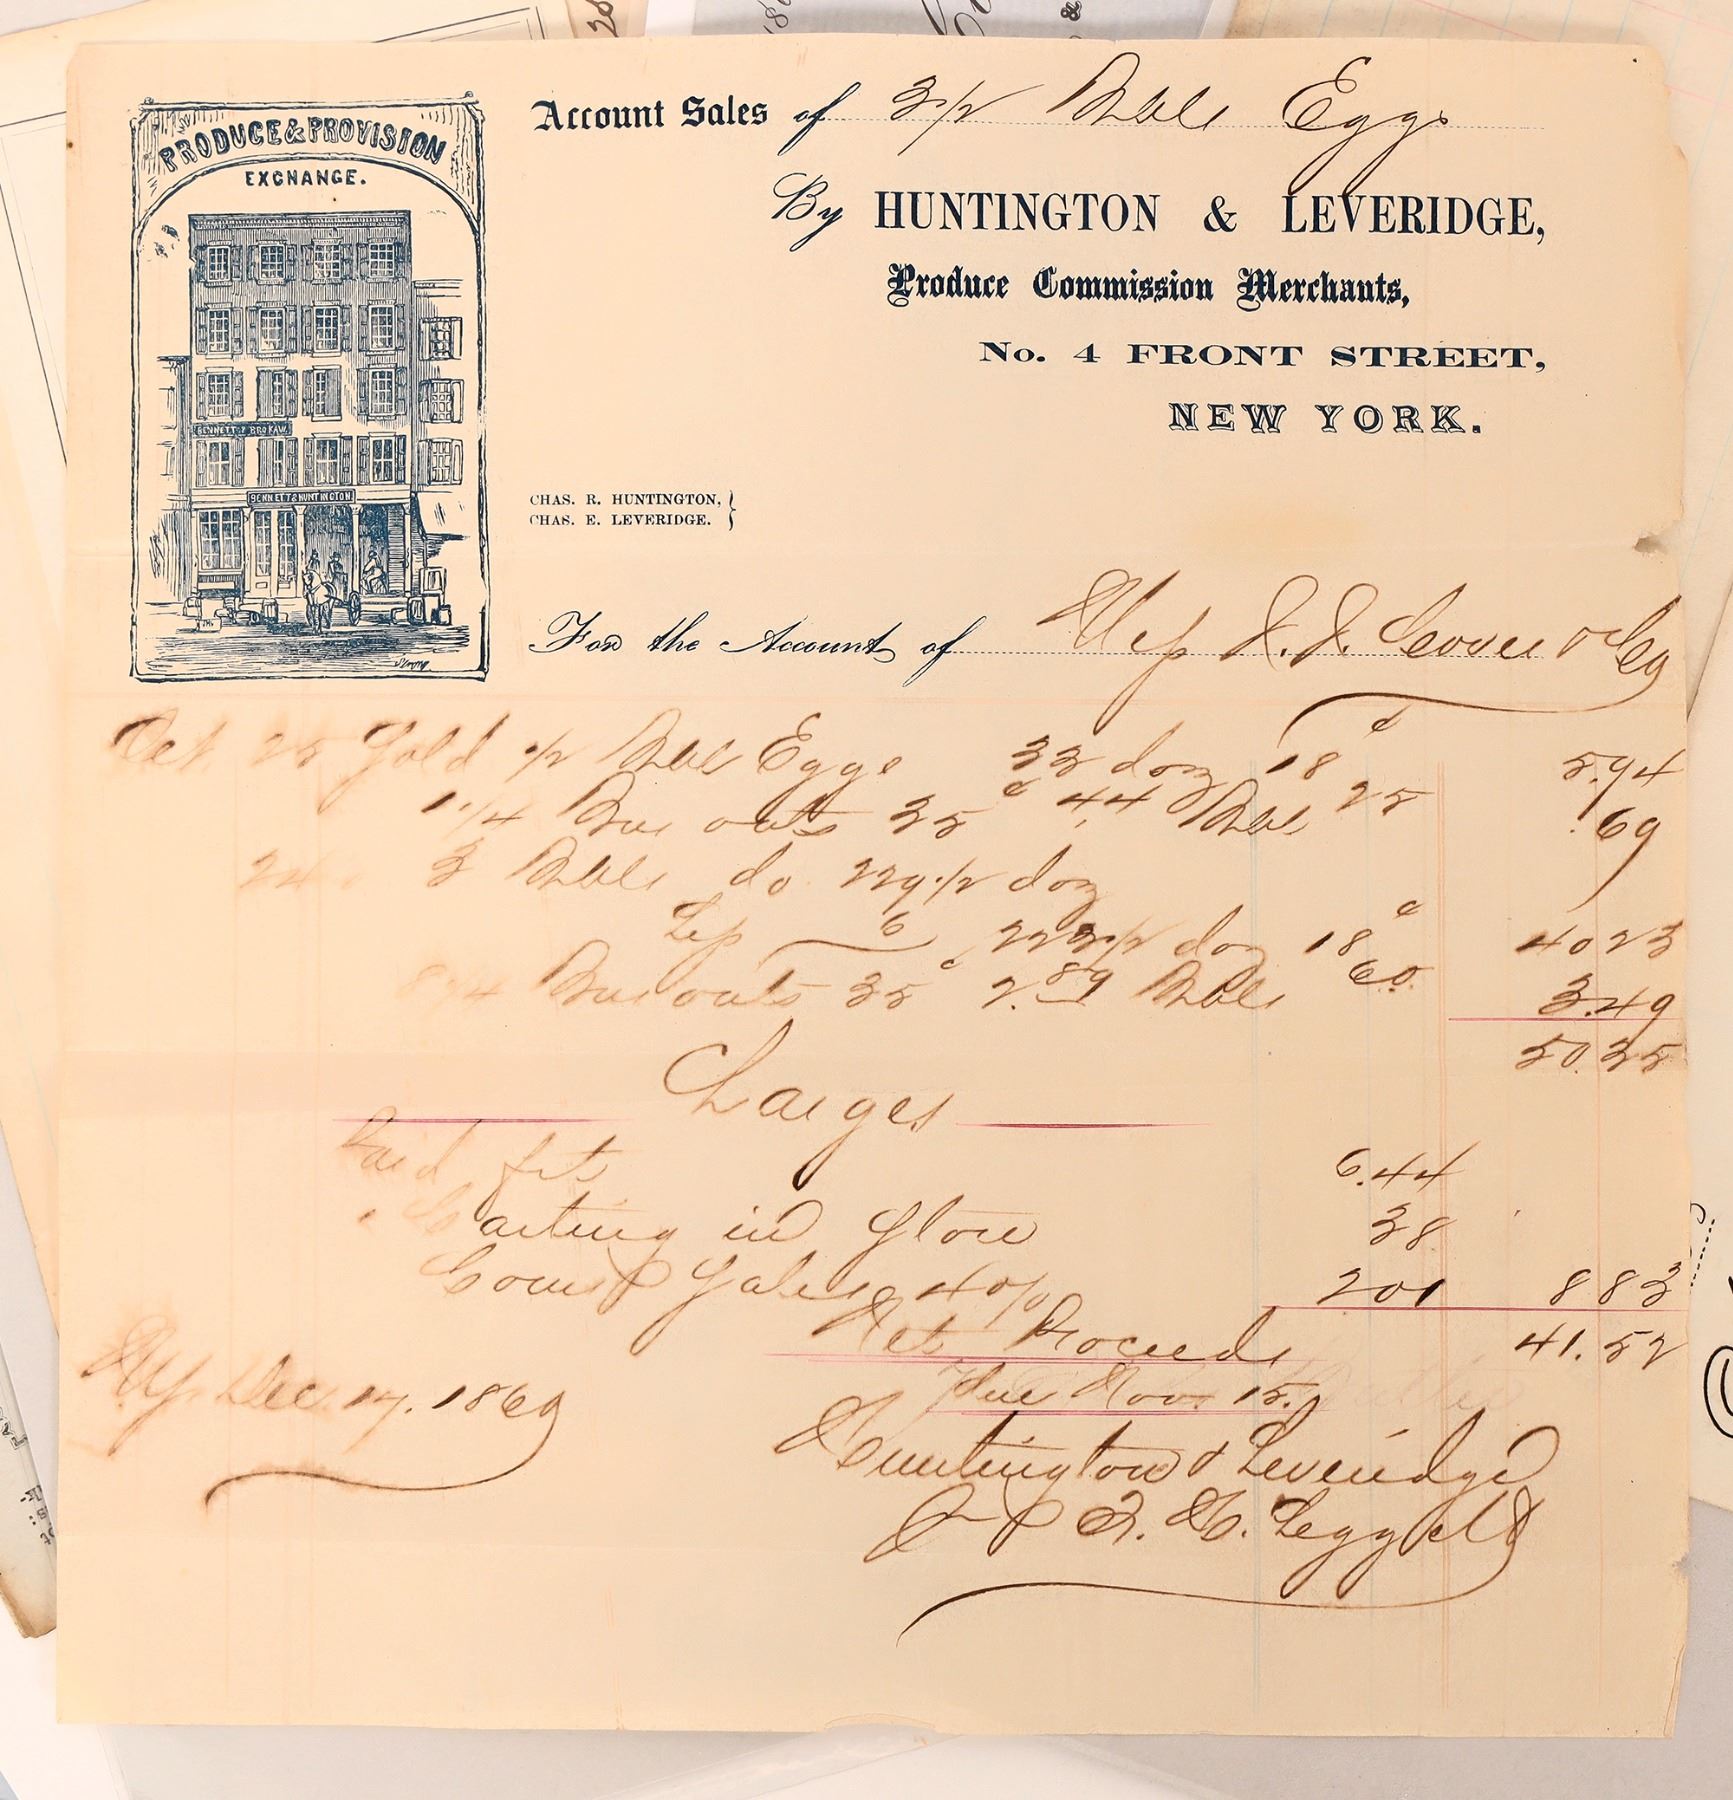 PRODUCE & PROVISION
EXCHANGE.
BENNETT & BROKAW
BENNETT & HUNTINGTON
Account Sales of 3 1/2 Bbls Eggs
By HUNTINGTON & LEVERIDGE,
Produce Commission Merchants,
No. 4 FRONT STREET,
NEW YORK.
CHAS. R. HUNTINGTON,
CHAS. E. LEVERIDGE.
For the Account of Mess J. J. Cover & Co
Oct. 25 Sold 1/2 Bbl Eggs 33 doz 18 ¢ 5.94
1 1/4 Bus oats 35 ¢ 44 Bbl 25 .69
3 Bbls do 229 1/2 doz
Less 6 223 1/2 doz 18 ¢ 40 23
8 1/4 Bus oats 35 ¢ 2.89 Bbls 60. 3.49
50.35
Charges
Paid frt 6.44
Carting in Store 38
Coms Sales 4 0/0 201 8 83
Net Proceeds 41.52
Due Nov. 15.
NY. Dec. 17. 1869
Huntington & Leveridge
Leggett